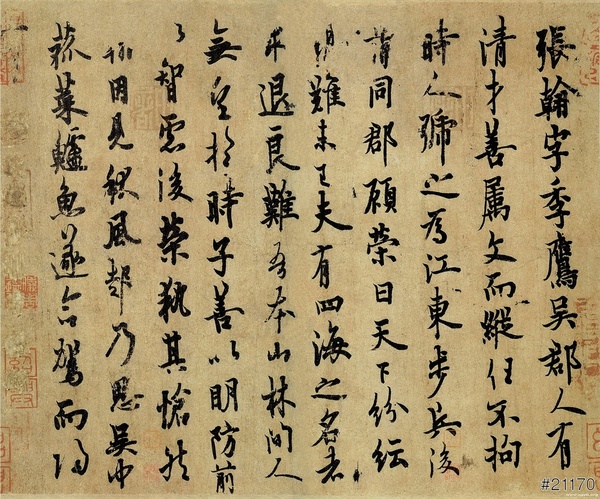 張翰字季鷹吳郡人有
清才善属文而縱任不拘
時人號之為江東步兵後
謂同郡顧榮曰天下紛紜
禍難未已夫有四海之名者
求退良難吾本山林間人
無望於時子善以明防前
以智慮後榮執其愴然
翰因見秋風起乃思吳中
菰菜鱸魚遂命駕而歸
#21170